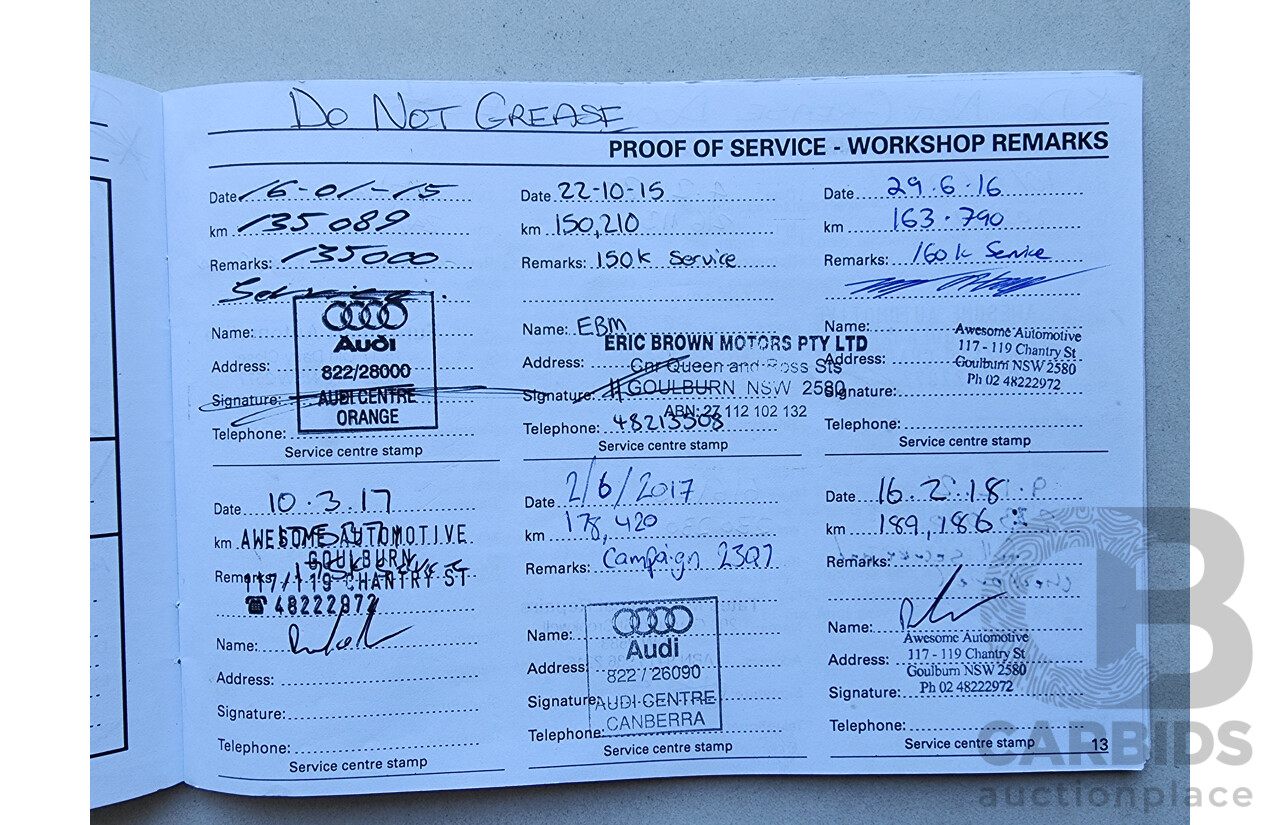 DO NOT GREASE
PROOF OF SERVICE - WORKSHOP REMARKS
Date 16-01-15
km 135089
Remarks: 135000
Service
Name:
Address:
Signature:
Telephone:
Audi
822/28000
AUDI CENTRE
ORANGE
Service centre stamp
Date 22-10-15
km 150,210
Remarks: 150K Service
Name: EBM
ERIC BROWN MOTORS PTY LTD
Address: Cnr Queen and Ross Sts
Signature: GOULBURN NSW 2580
ABN: 27 112 102 132
Telephone: 48213308
Service centre stamp
Date 29.6.16
km 163.790
Remarks: 160K Service
Name:
Address:
Signature:
Telephone:
Awesome Automotive
117 - 119 Chantry St
Goulburn NSW 2580
Ph 02 48222972
Service centre stamp
Date 10.3.17
km
AWESOME AUTOMOTIVE
GOULBURN
Remarks:
117/119 CHANTRY ST
☎ 48222972
Name:
Address:
Signature:
Telephone:
Service centre stamp
Date 2/6/2017
km 178,420
Remarks: Campaign 23Q7
Name:
Address:
Signature:
Telephone:
Audi
822/26090
AUDI CENTRE
CANBERRA
Service centre stamp
Date 16.2.18
km 189,186
Remarks:
Name:
Address:
Signature:
Telephone:
Awesome Automotive
117 - 119 Chantry St
Goulburn NSW 2580
Ph 02 48222972
Service centre stamp
13
CARBIDS
auctionplace